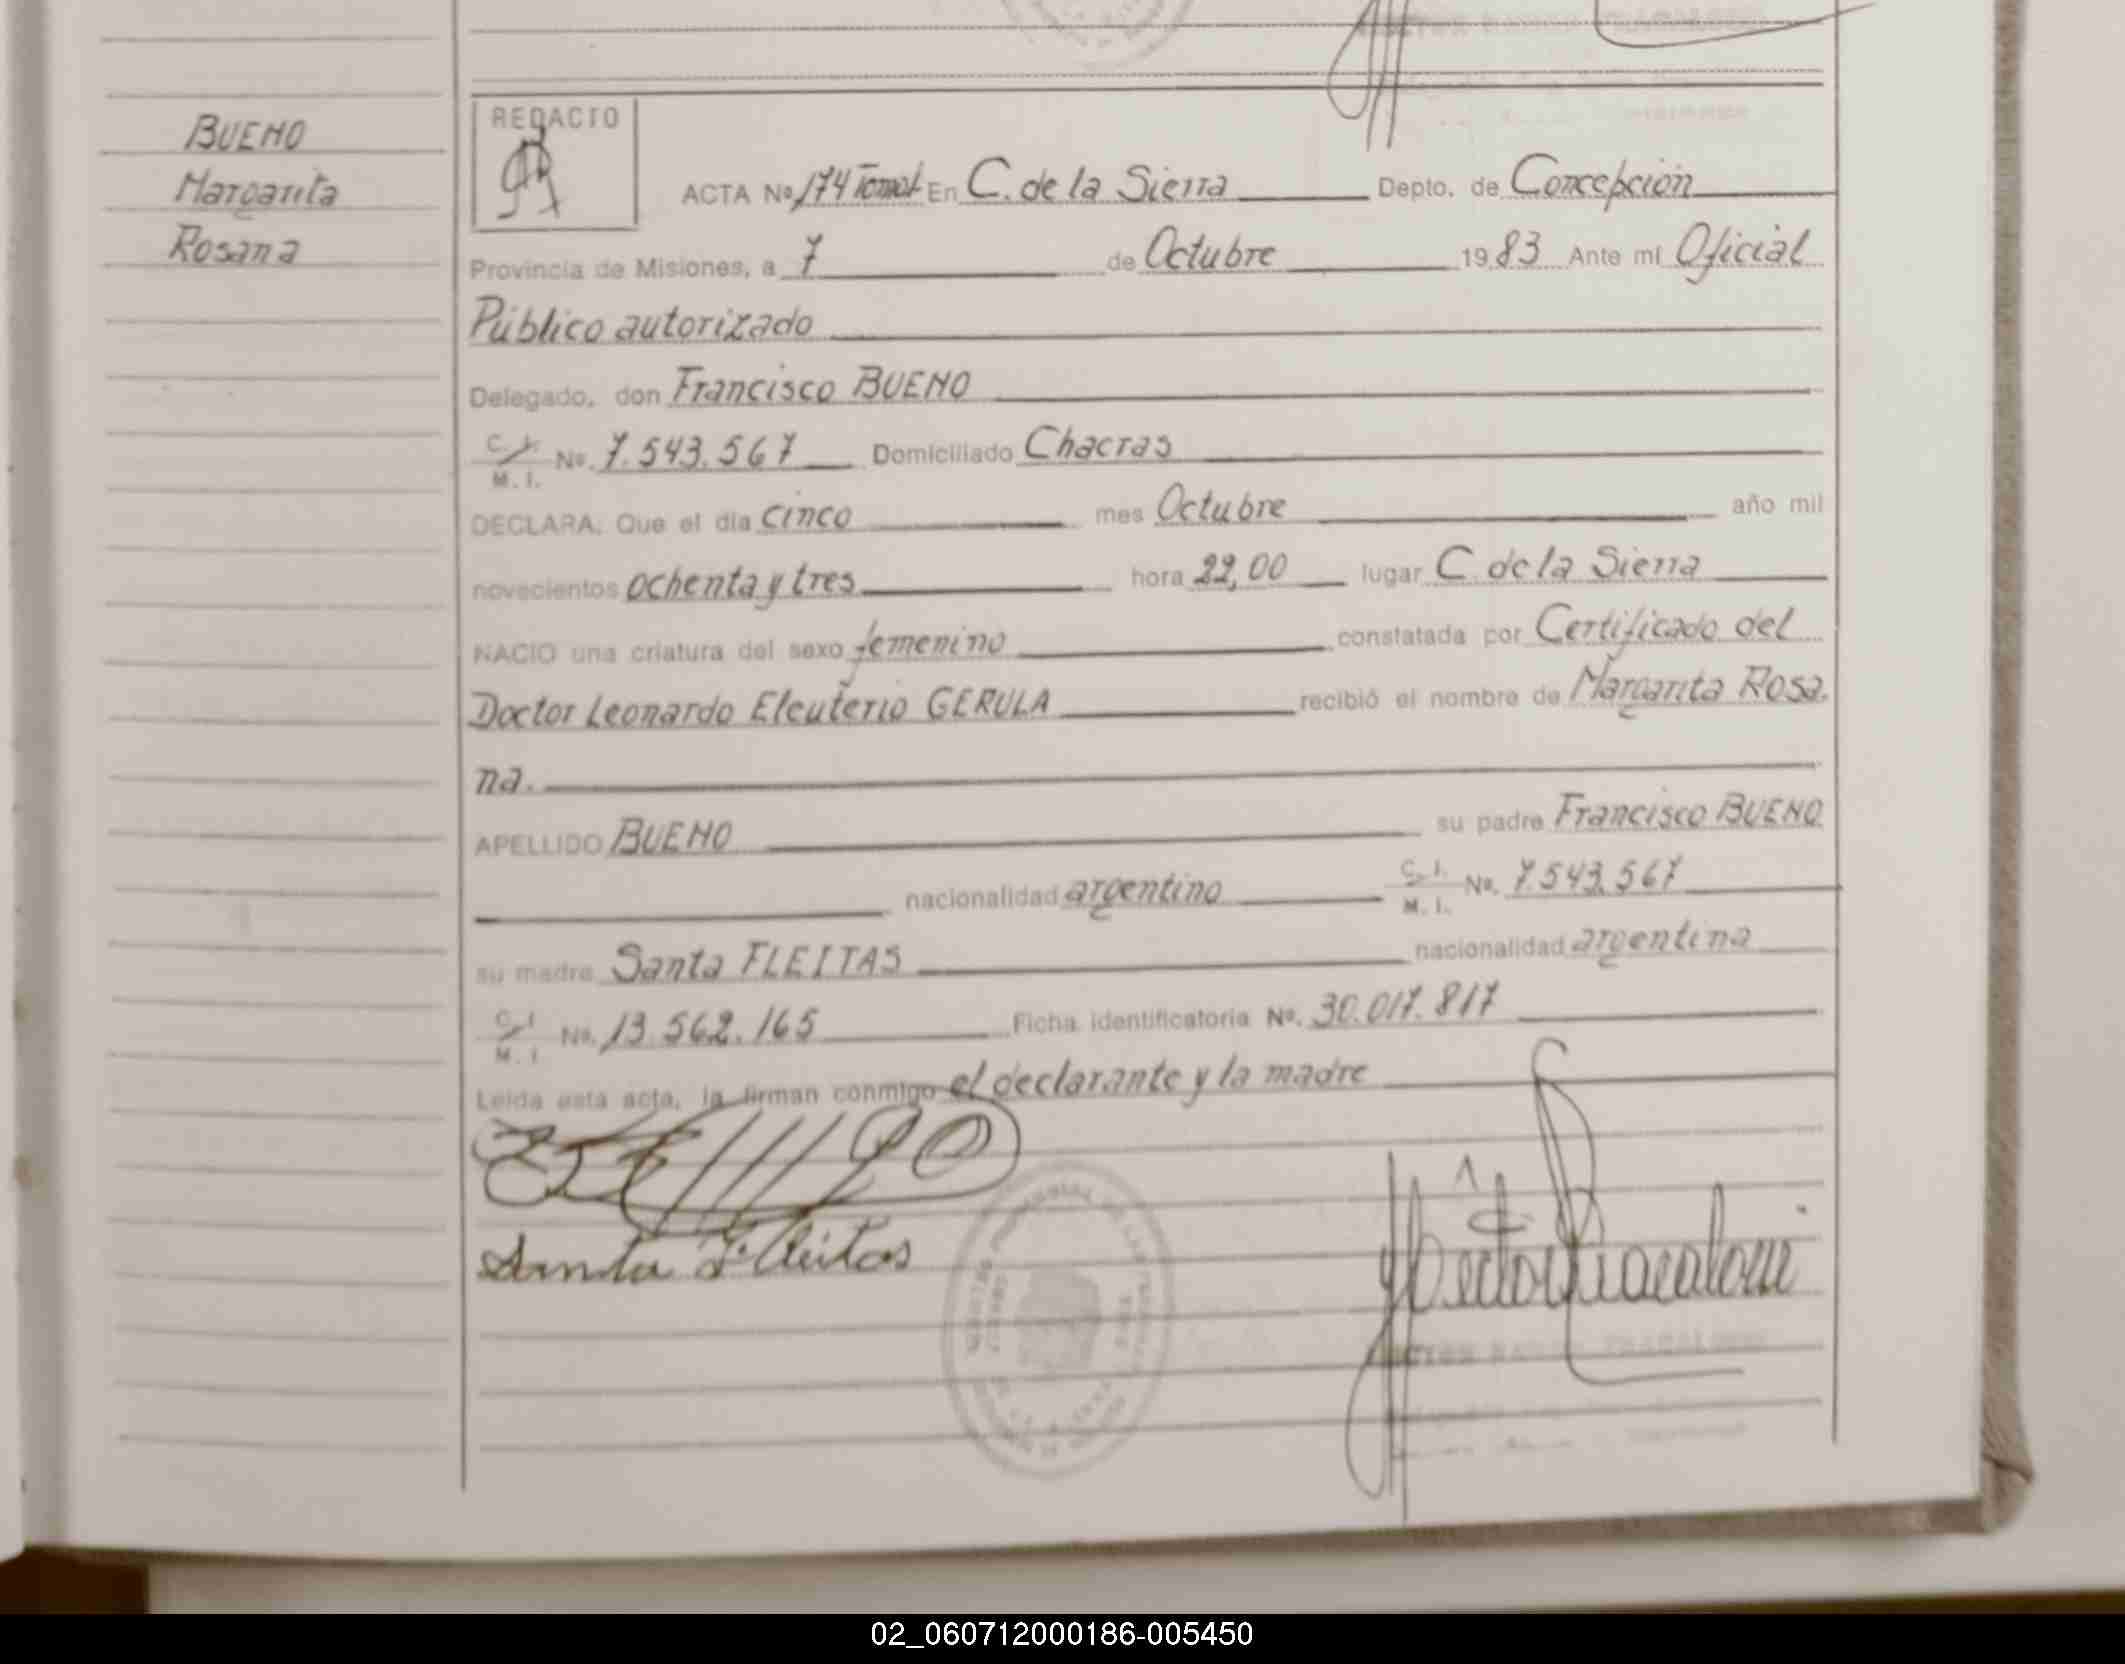 BUENO
Margarita
Rosana
REDACTO
ACTA Nº 174 Tomo I En C. de la Sierra Depto. de Concepción
Provincia de Misiones, a 7 de Octubre 1983 Ante mí Oficial
Público autorizado
Delegado, don Francisco BUENO
C. I. M. I. Nº. 7.543.567 Domiciliado Chacras
DECLARA: Que el día cinco mes Octubre año mil
novecientos ochenta y tres hora 22,00 lugar C. de la Sierra
NACIO una criatura del sexo femenino constatada por Certificado del
Doctor Leonardo Eleuterio GERULA recibió el nombre de Margarita Rosa
na.
APELLIDO BUENO su padre Francisco BUENO
nacionalidad argentino C. I. M. I. Nº. 7.543.567
su madre Santa FLEITAS nacionalidad argentina
C. I. M. I. Nº. 13.562.165 Ficha identificatoria Nº. 30.017.817
Leída esta acta, la firman conmigo el declarante y la madre
Santa Fleitas
02_060712000186-005450